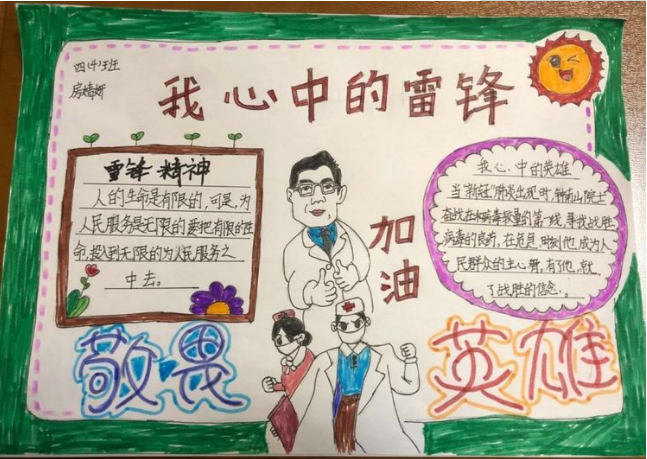 四(4)班
房婧妍
我心中的雷锋
雷锋精神
人的生命是有限的,可是,为
人民服务是无限的要把有限的生
命,投入到无限的为人民服务之
中去。
加油
我心中的英雄
当"新冠"肺炎出现时,钟南山院士
奋战在本病毒较量的第一线,寻找战胜
病毒的良药,在危急时刻他,成为人
民群众的主心骨,有了他,就
了战胜的信念。
敬畏
英雄